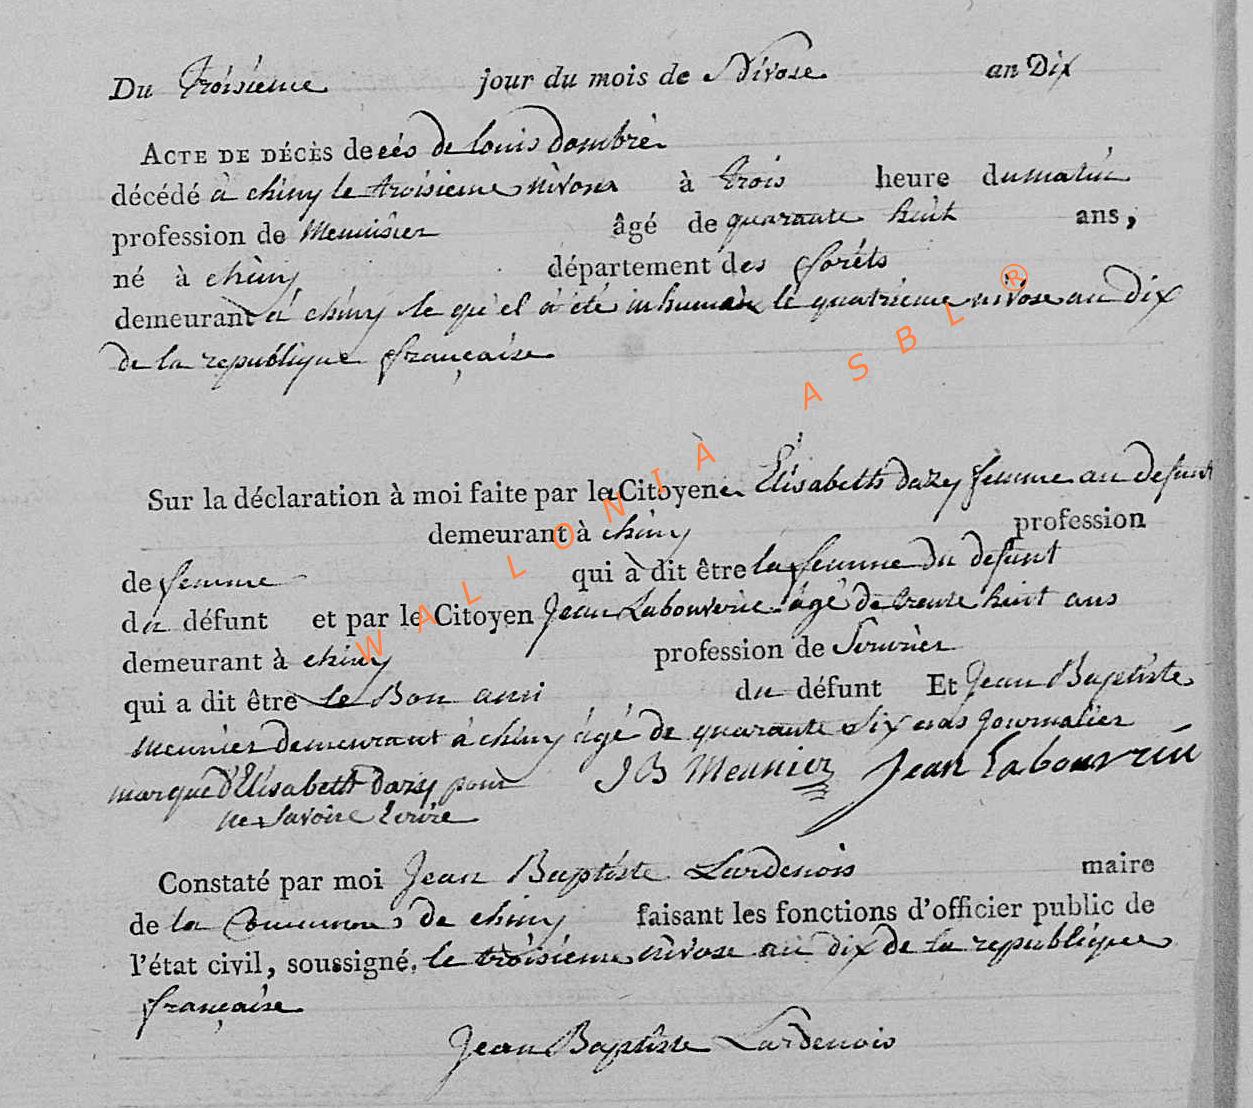 Du Troisieme jour du mois de Nivose an Dix
ACTE DE DÉCÈS de cés de louis dombré
décédé à chiny le troisieme nivose à trois heure du matin
profession de Menuisier âgé de quarante huit ans,
né à chiny département des forêts
demeurant à chiny le qu'el à été inhumair le quatrieme nivose an dix
de la republique française
Sur la déclaration à moi faite par le Citoyene Elisabeth dazy femme au defunt
demeurant à chiny profession
de femme qui à dit être la femme du defunt
du défunt et par le Citoyen Jean Labouverie âgé de trente huit ans
demeurant à chiny profession de
qui a dit être le Bon ami du défunt Et Jean Baptiste
meunier demeurant à chiny âgé de quarante six ans Journalier
marque d'Elisabeth dazy pour J B Meunier Jean Labouvrin
ne Savoire Ecrire
Constaté par moi Jean Baptiste Lardenois maire
de la Commune de chiny faisant les fonctions d'officier public de
l'état civil, soussigné, le troisiéme nivose an dix de la republique
française
Jean Baptiste Lardenois
WALLONIÀ ASBL ®